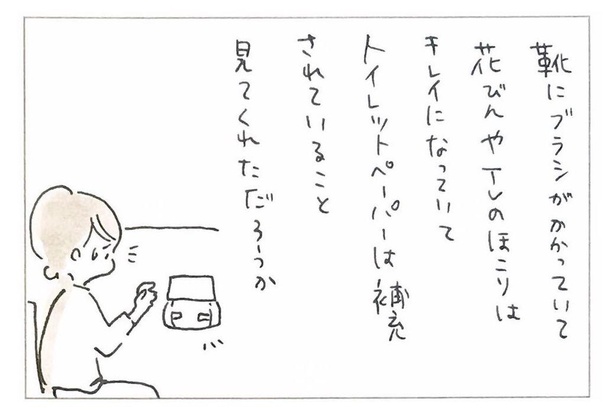 靴にブラシがかかっていて
花びんやTVのほこりは
キレイになっていて
トイレットペーパーは補充
されていること
見てくれただろうか